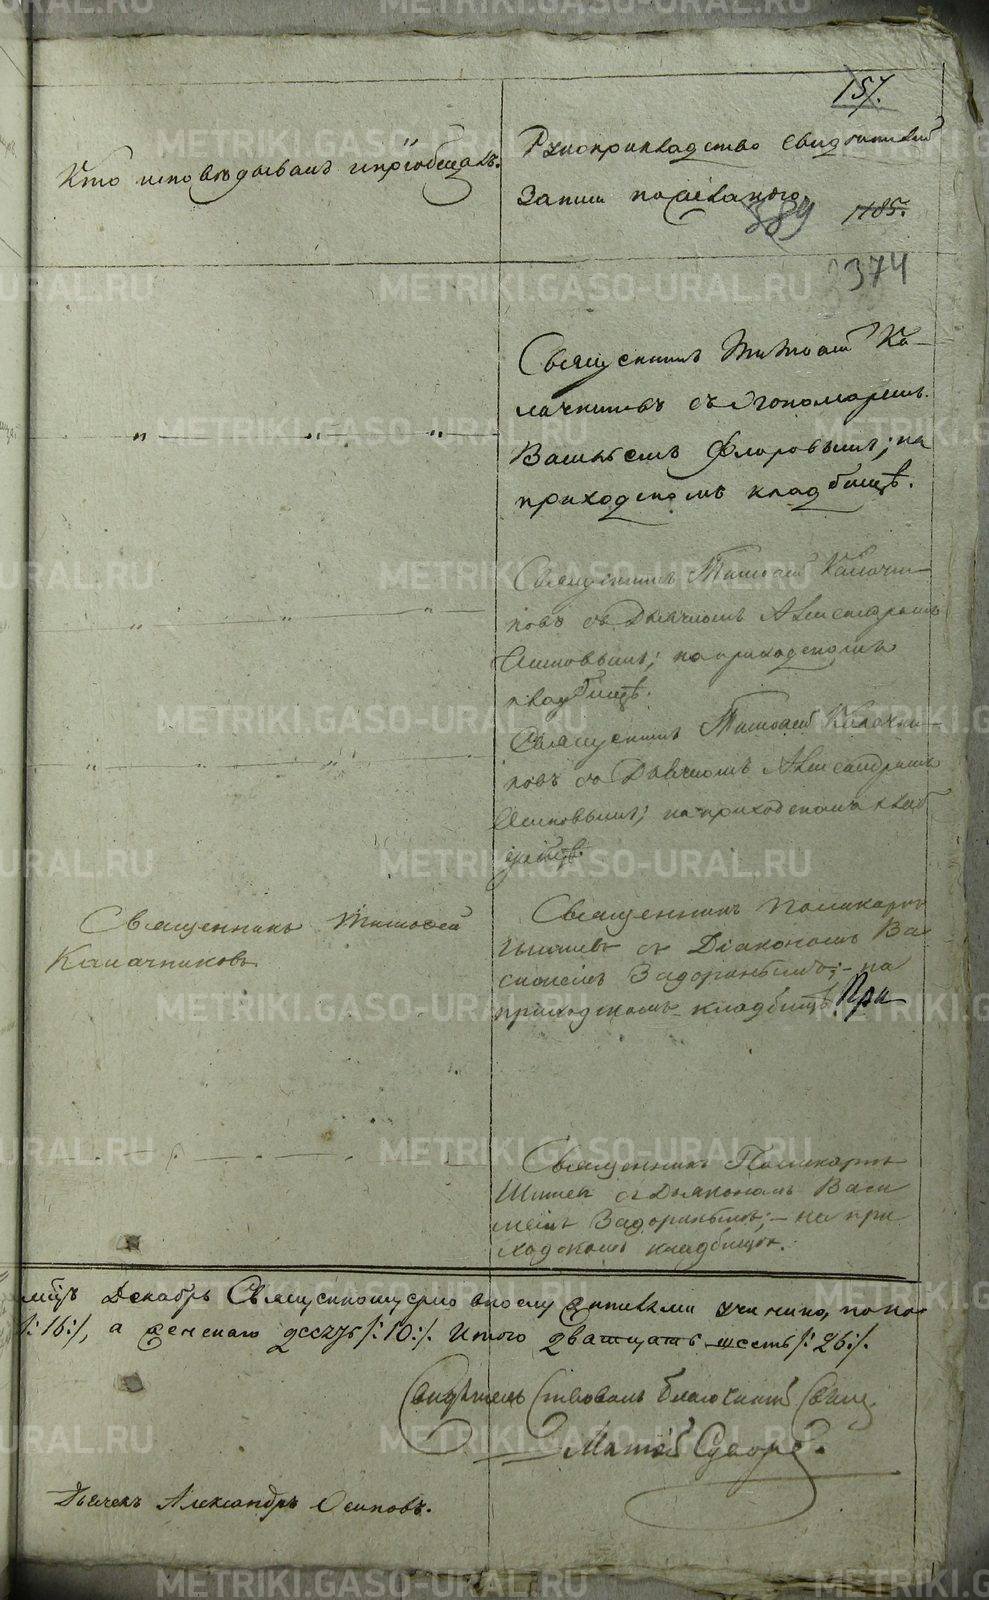 157.
Кто исповѣдывалъ и пріобщалъ.
Рукоприкладство свидѣтелей
записи по желанію.
389 1185.
374
Священникъ Тимоѳей Ка-
лачниковъ съ Пономаремъ
Васильемъ Флоровымъ; на
приходскомъ кладбищѣ.
Священникъ Тимоѳей Калачни-
ковъ съ Дьячкомъ Александромъ
Осиповымъ; на приходскомъ
кладбищѣ.
Священникъ Тимоѳей Калачни-
ковъ съ Дьячкомъ Александромъ
Осиповымъ; на приходскомъ клад
бищѣ.
Священникъ Тимоѳей
Калачниковъ
Священникъ Поликарпъ
съ Діакономъ Ва-
сильемъ Задоринымъ; - на
приходскомъ кладбищѣ. При
Священникъ Поликарпъ
съ Дьякономъ Васи
льемъ Задоринымъ; - на при
ходскомъ кладбищѣ.
мцъ Декабрь Священноцерковно
/: 16 :/, а женскаго десять /: 10 :/. Итого двадцать шесть /: 26 :/.
Свидѣтельствовалъ благочинный Свящ.
Матѳей
Дьячекъ Александръ Осиповъ.
METRIKI.GASO-URAL.RU